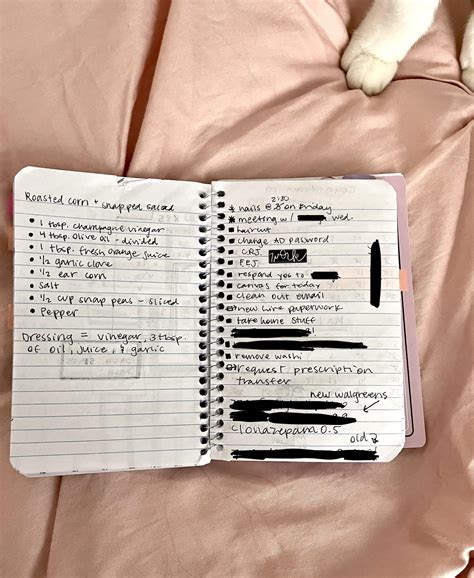 Roasted corn + snapped salad
• 1 tbsp. champagne vinegar
• 4 tbsp. Olive oil - divided
• 1 tbsp. fresh orange juice
• 1/2 garlic clove
• 1/2 ear corn
• salt
• 1/2 cup snap peas - sliced
• Pepper
Dressing = vinegar, 3 tbsp.
of oil, juice, & garlic
2:30
* nails @ on Friday
* meeting w/ wed.
▪ haircut
▪ change AD password
▪ CRJ.
▪ FEJ.
▪ respond you to
▪ canvas for today
▪ clean out email
new hire paperwork
▪ take home stuff
▪ remove washi
request prescription
transfer
new walgreens
clonazepam 0.5
old